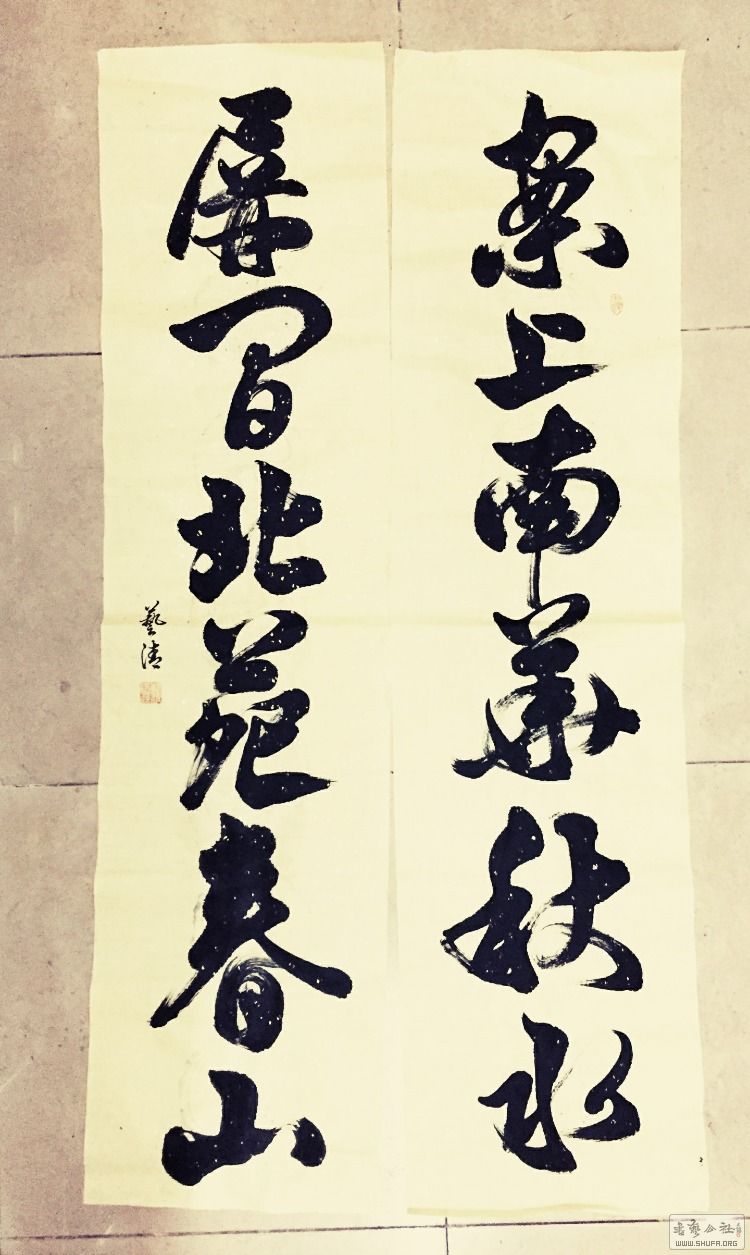 案上南華秋水
屏間北苑春山
藝清
書藝公社
WWW.SHUFA.ORG